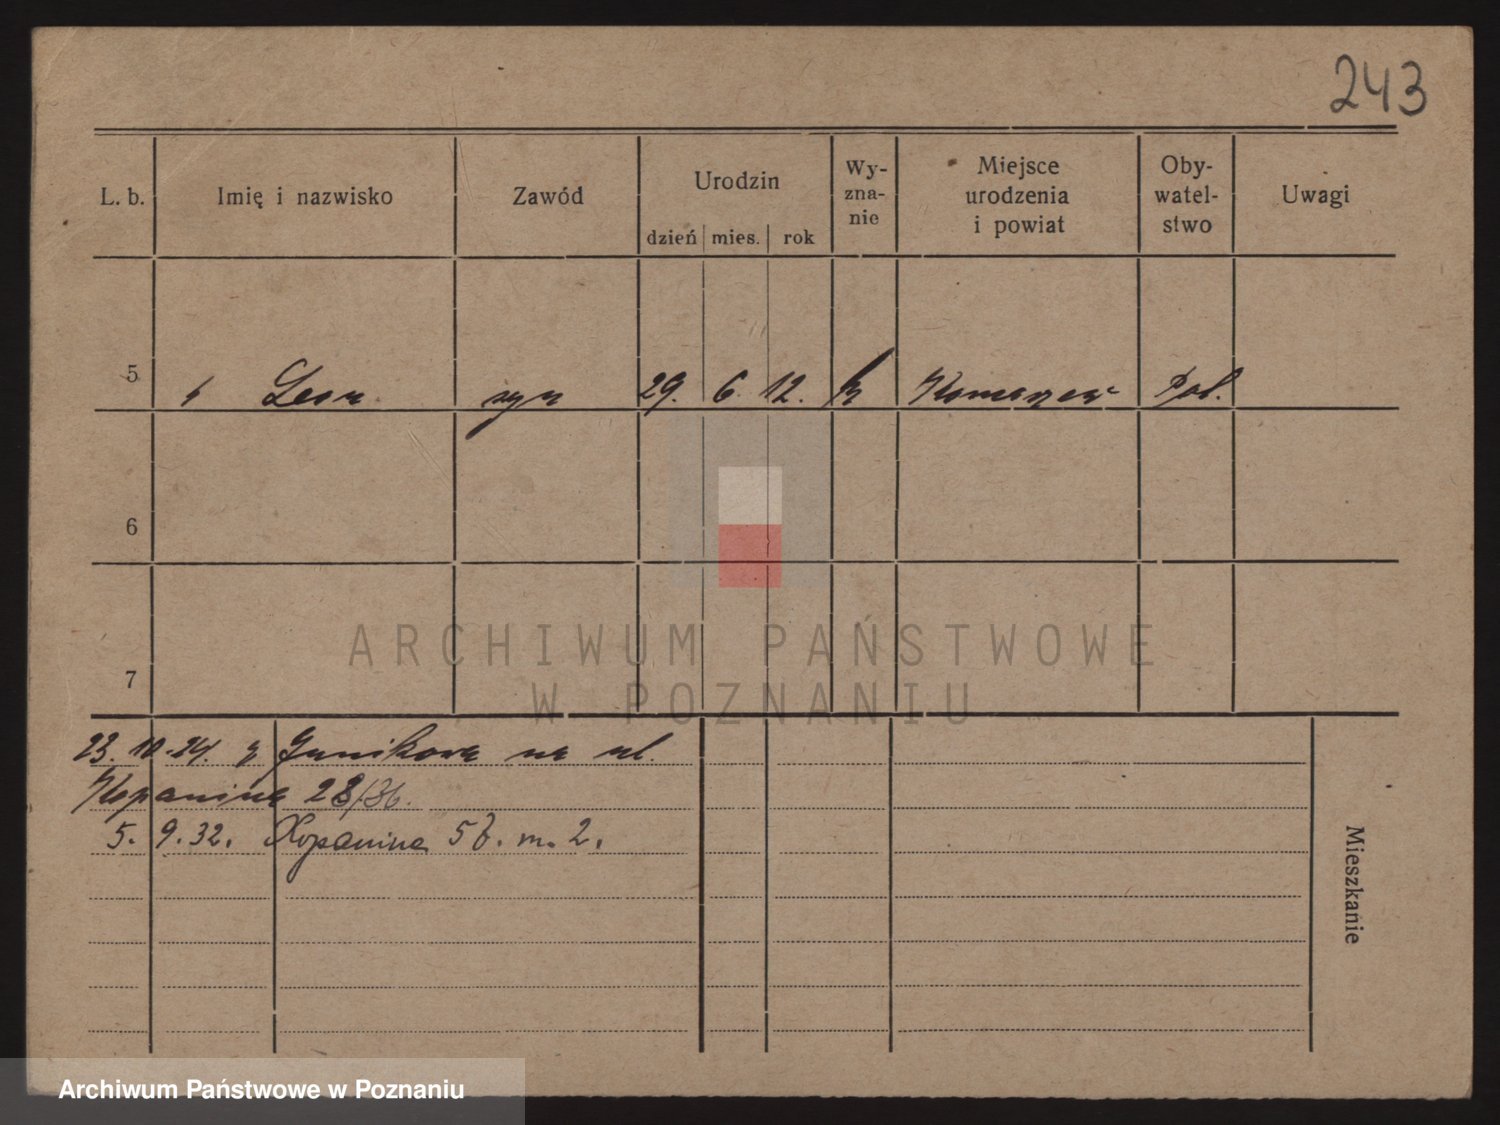 243
L. b. Imię i nazwisko Zawód Urodzin dzień mies. rok Wy-zna-nie Miejsce urodzenia i powiat Oby-watel-stwo Uwagi
5 Leon syn 29. 6. 12. k Pol.
6
ARCHIWUM PAŃSTWOWE
7
W POZNANIU
23. 10. 24. z Junikowa na ul.
Kopanina 28/36.
5. 9. 32. Kopanina 56. m. 2.
Mieszkanie
Archiwum Państwowe w Poznaniu